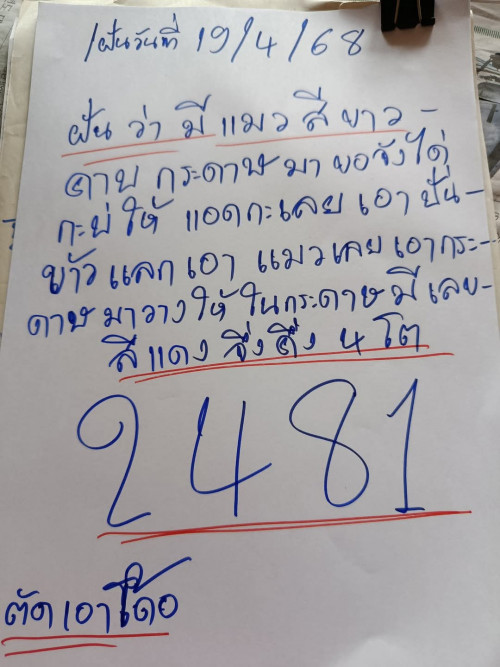 ฝันวันที่ 19/4/68
ฝันว่ามีแมวสีขาว-
คาบกระดาษมา ขอจังได๋
กะบ่ให้ แอดกะเลยเอาปั้น-
ข้าวแลกเอา แมวเลยเอากระ-
ดาษมาวางให้ ในกระดาษมีเลข-
สีแดง จึ่งคึ่ง 4 โต
2481
ตัดเอาเด้อ